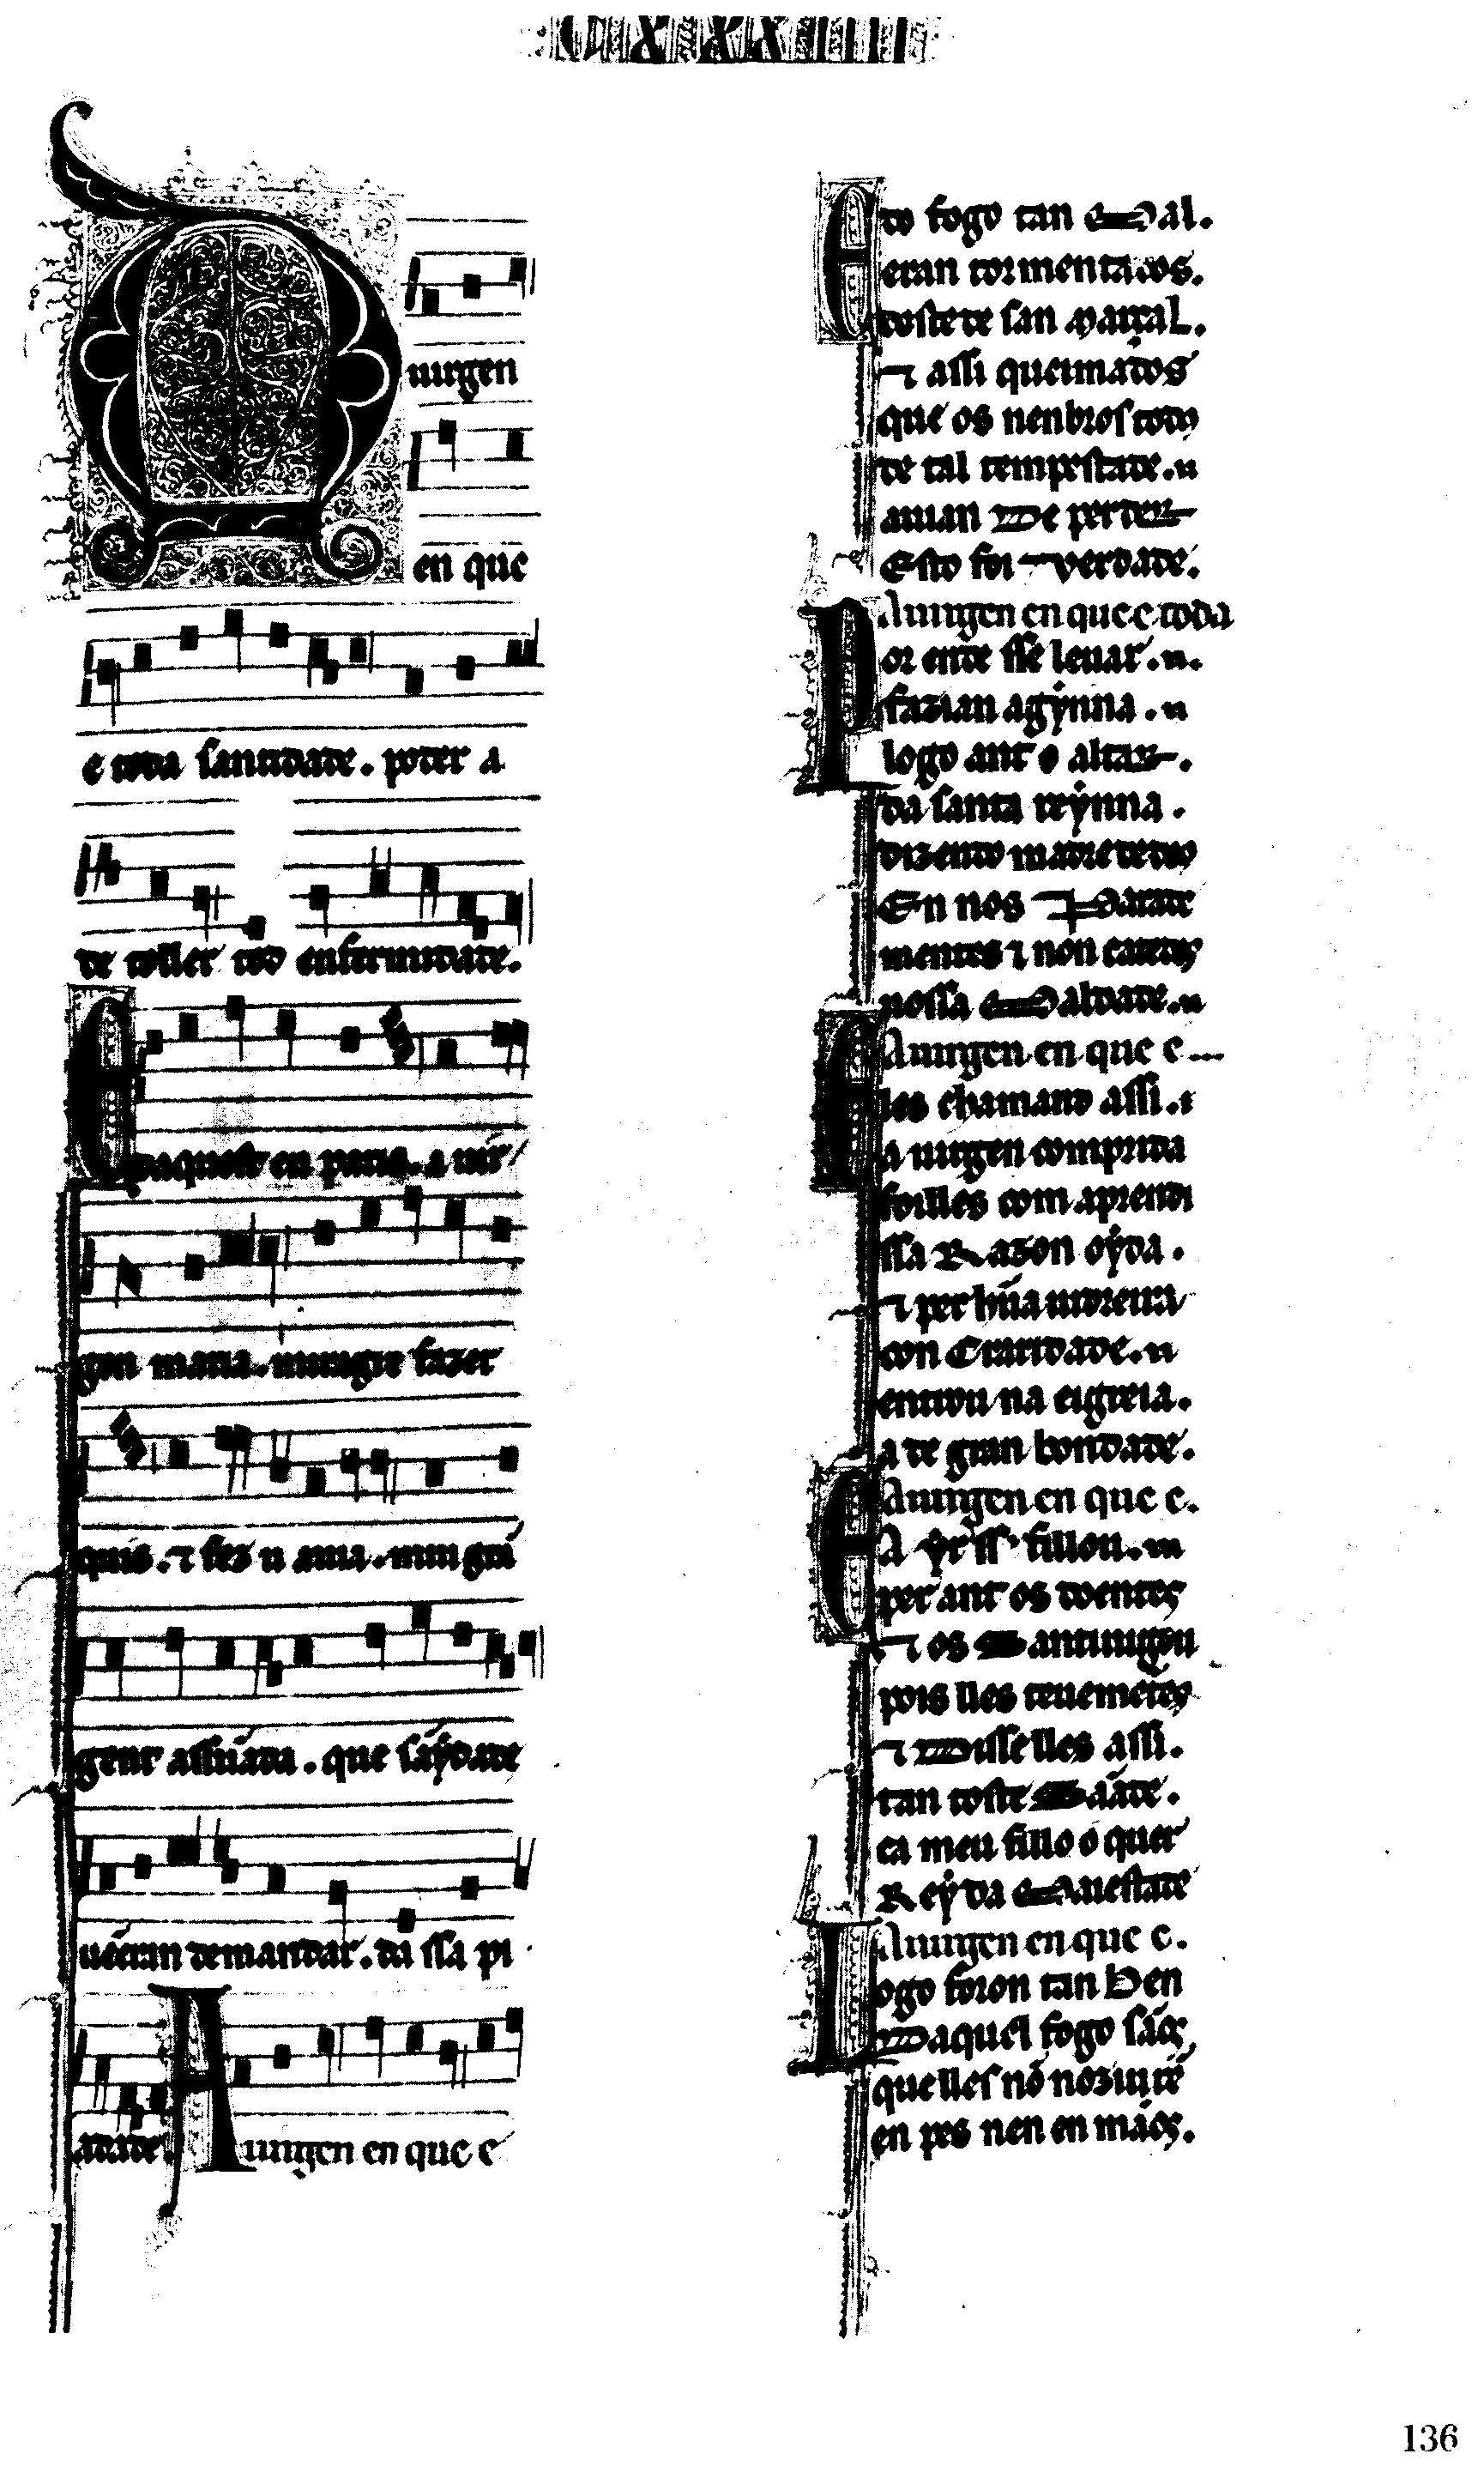 CXXXIIII
A uirgen
en que
e toda santidade. poder a
de toller tod enfermidade.
E daquest en paris. a uir
gen maria. miragre fazer
quis. ⁊ fez y auia. mui grã
gent assũada. que sãydade
uẽeran demandar. da ssa pi
adade. A uirgen en que e
E do fogo tan Mal.
eran tormentados.
deste de san Marçal.
⁊ assi queimados
que os nenbros todos
de tal tempestade. y
auian De perder
Esto foi Uerdade.
A uirgen en que e toda
Por ende sse leuar. y.
fazian aginna. y
logo ant o altar.
da santa reynna.
dizendo madre de deus
En nos Parade
mentes ⁊ non catedes
nossa Maldade. y
A uirgen en que e...
Eles chamand assi. i
a uirgen comprida
foilles com aprendi
ssa Razon oyda.
⁊ per hũa uidreira
con Craridade. y
entrou na eigreia.
a de gran bondade.
A uirgen en que e.
E A ss. fillou. m
per ant os doentes
⁊ os Santiuigou
pois lles teue mẽtes
⁊ Disselles assi.
tan toste Sãade.
ca meu fillo o quer
Rey da Maiestade
A uirgen en que e.
Logo foron tan Ben
Daquel fogo sãos
que lles nõ noziu rẽ
en pes nen en mãos.
136